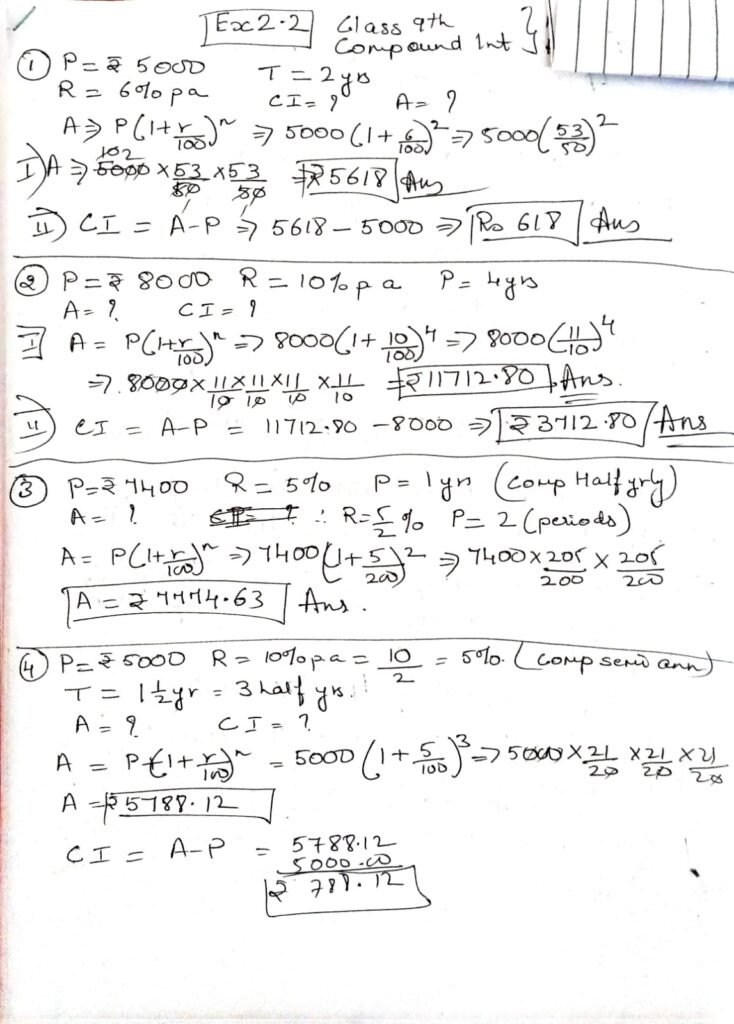 Ex 2.2 Class 9th
Compound Int }
① P = ₹ 5000 T = 2 yrs
R = 6% pa CI = ? A = ?
A ⇒ P(1+r/100)^n ⇒ 5000(1+6/100)^2 ⇒ 5000(53/50)^2
I) A ⇒ 5000 102 × 53/50 × 53/50 = ₹5618 Ans
II) CI = A-P ⇒ 5618 – 5000 ⇒ Rs 618 Ans
② P = ₹ 8000 R = 10% pa P = 4 yrs
A = ? CI = ?
I) A = P(1+r/100)^n ⇒ 8000(1+10/100)^4 ⇒ 8000(11/10)^4
⇒ 8000 × 11/10 × 11/10 × 11/10 × 11/10 = ₹11712.80 Ans.
II) CI = A-P = 11712.80 – 8000 ⇒ ₹3712.80 Ans
③ P = ₹ 7400 R = 5% P = 1 yrs (Comp Half yrly)
A = ? CI = ? ∴ R = 5/2 % P = 2 (periods)
A = P(1+r/100)^n ⇒ 7400(1+5/200)^2 ⇒ 7400 × 205/200 × 205/200
A = ₹ 7774.63 Ans.
④ P = ₹ 5000 R = 10% pa = 10/2 = 5%. (comp semi ann)
T = 1 1/2 yr = 3 half yrs.
A = ? CI = ?
A = P(1+r/100)^n = 5000 (1+5/100)^3 ⇒ 5000 × 21/20 × 21/20 × 21/20
A = ₹5788.12
CI = A-P = 5788.12
5000.00
₹ 788.12